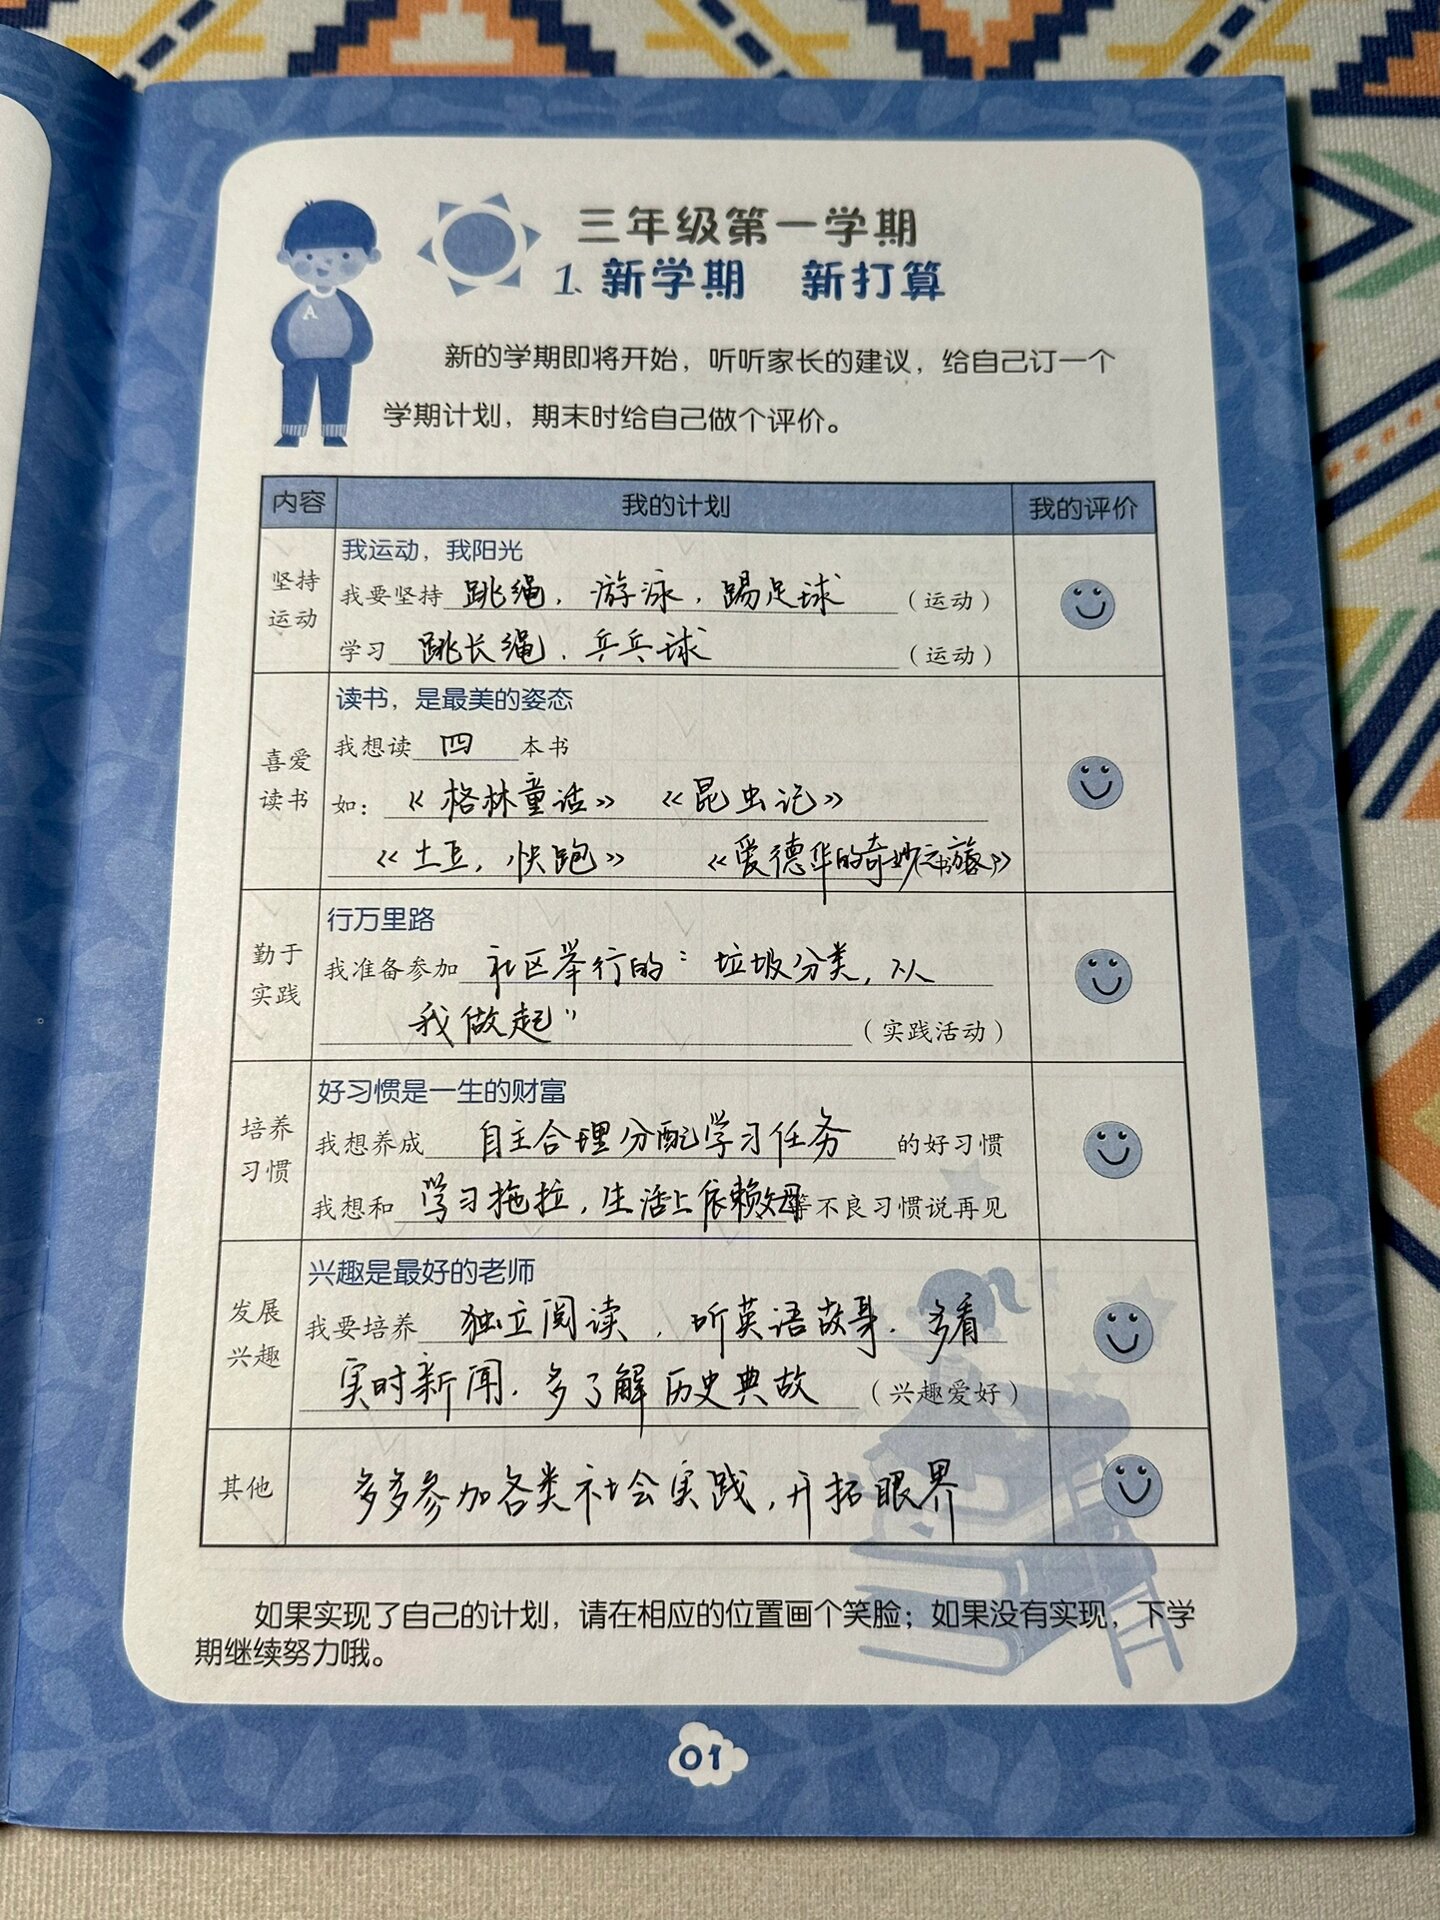 三年级第一学期
1. 新学期 新打算
新的学期即将开始，听听家长的建议，给自己订一个
学期计划，期末时给自己做个评价。
内容 我的计划 我的评价
坚持
运动
我运动，我阳光
我要坚持 跳绳，游泳，踢足球 （运动）
学习 跳长绳，乒乓球 （运动）
喜爱
读书
读书，是最美的姿态
我想读 四 本书
如：《格林童话》 《昆虫记》
《土豆，快跑》 《爱德华的奇妙之旅》
勤于
实践
行万里路
我准备参加 社区举行的："垃圾分类，从
我做起" （实践活动）
培养
习惯
好习惯是一生的财富
我想养成 自主合理分配学习任务 的好习惯
我想和 学习拖拉，生活上依赖父母 等不良习惯说再见
发展
兴趣
兴趣是最好的老师
我要培养 独立阅读，听英语故事，多看
实时新闻，多了解历史典故 （兴趣爱好）
其他
多多参加各类社会实践，开拓眼界
如果实现了自己的计划，请在相应的位置画个笑脸；如果没有实现，下学
期继续努力哦。
01
A